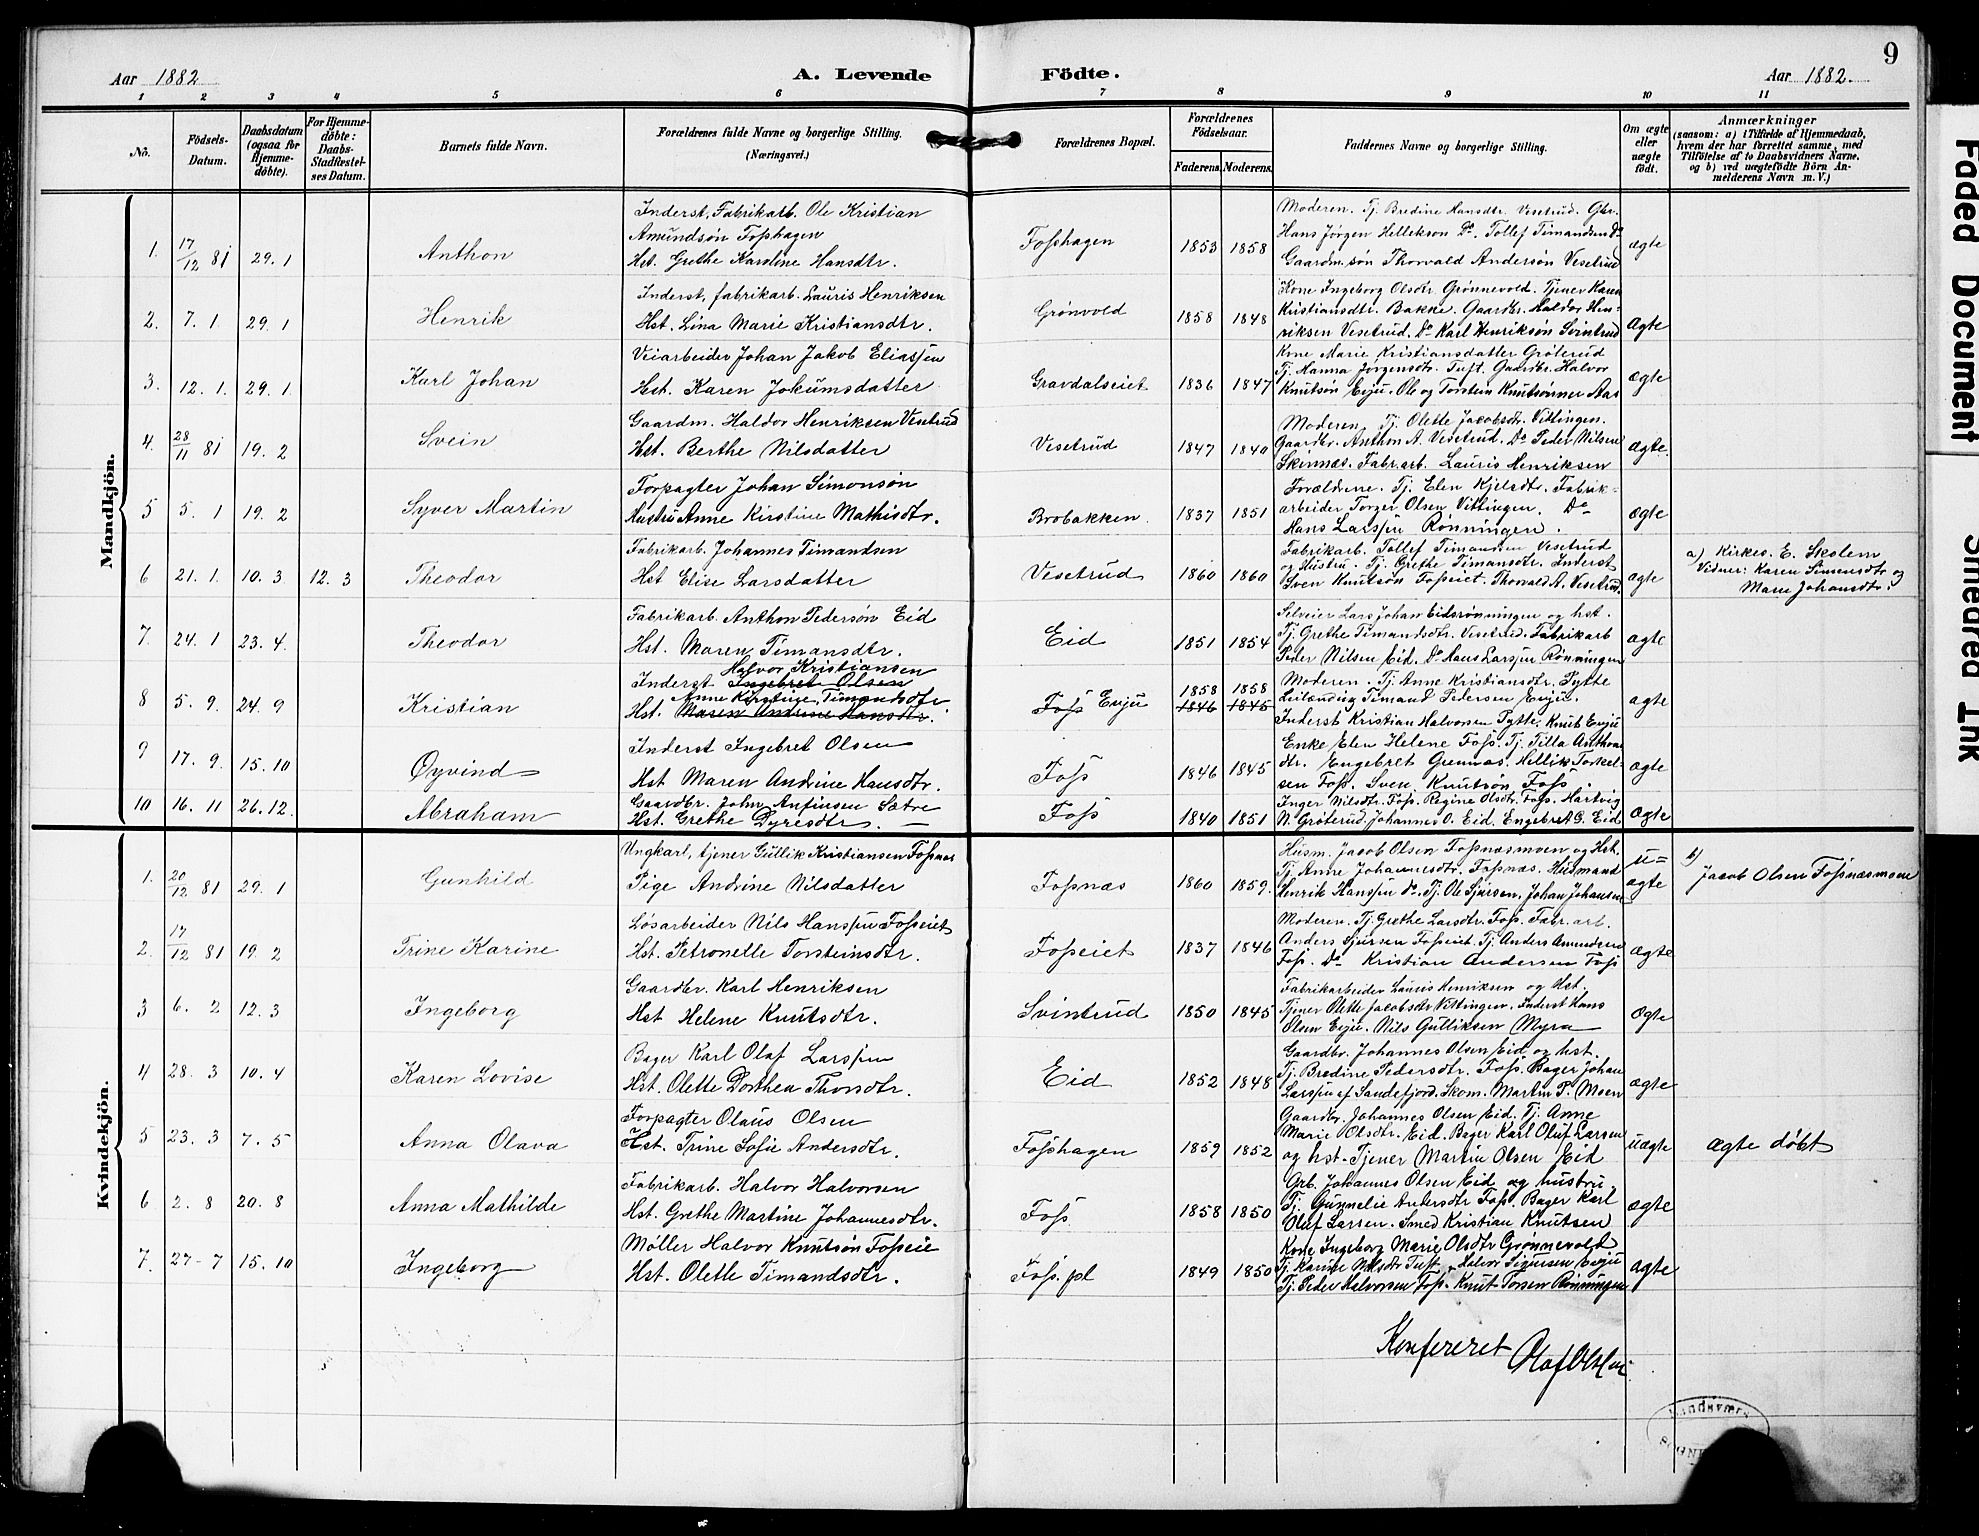 9
Aar 1882 A. Levende Födte. Aar 1882.
1 2 3 4 5 6 7 8 9 10 11
No. Födsels-Datum. Daabsdatum (ogsaa for Hjemmedöbte). For Hjemmedöbte: Daabs-Stadfæstelses Datum. Barnets fulde Navn. Forældrenes fulde Navne og borgerlige Stilling. (Næringsvei.) Forældrenes Bopæl. Forældrenes Födselsaar. Faderens. Moderens. Faddernes Navne og borgerlige Stilling. Om ægte eller uægte födt. Anmærkninger (saasom: a) i Tilfælde af Hjemmedaab, hvem der har forrettet samme, med Tilföielse af to Daabsvidners Navne, og b) ved uægtefödte Börn Anmelderens Navn m. V.)
Mandkjön.
1. 17/12 81 29. 1 Anthon
Inderst, Fabrikarb. Ole Kristian
Amundsøn Fosshagen
Hst. Grethe Karoline Hansdtr.
Fosshagen 1853 1858
Moderen. Tj. Bredine Hansdtr. Vesetrud. Gbr.
Hans Jörgen Hellekson Do. Tollef Timandsen Do
Gaardm.søn Thorvald Andersøn Vesetrud
ægte
2. 7. 1 29. 1 Henrik
Inderst, fabrikarb. Lauris Henriksen
Hst. Lina Marie Kristiansdtr.
Grønvold 1858 1848
Kone Ingeborg Olsdtr. Grønnevold. Tjener Karen
Kristiansdtr. Bakke. Gaardbr. Haldor Hen-
riksen Vesetrud. Do Karl Henriksøn Svintrud
Ægte
3. 12. 1. 29. 1 Karl Johan
Veiarbeider Johan Jakob Eliassen
Hst. Karen Jokumsdatter
Gravdalseiet 1836 1847
Kone Marie Kristiansdatter Grøterud
Tj. Hanna Jørgensdtr. Tuft. Gaardbr. Halvor
Knutsøn Evju. Ole og Torstein Knutsønner Aas
Ægte
4. 28/11 81 19. 2 Svein
Gaardm. Haldor Henriksen Vesetrud
Hst. Berthe Nilsdatter
Vesetrud 1847 1840
Moderen, Tj. Olette Jacobsdtr. Vittingen.
Gaardbr. Anthon A. Vesetrud. Do Peder Nilsen
Skinnæs. Fabr.arb. Lauris Henriksen
ægte.
5 5. 1 19. 2 Syver Martin
Forpagter Johan Simonsøn
Hustru Anne Kirstine Mathisdtr.
Brobakken. 1837 1851
Forældrene. Tj. Elen Kjelsdtr. Fabrik-
arbeider Torger Olsen Vittingen. Do
Hans Larssen Rønningen.
ægte
6 21. 1. 10. 3 12. 3 Theodor
Fabrikarb. Johannes Timandsen
Hst Elise Larsdatter
Vesetrud 1860 1860
Fabrikarb. Tollef Timandsen Vesetrud
og Hustru. Tj. Grethe Timansdtr. Inderst
Sven Knutsøn Fosseiet. Thorvald A. Vesetrud.
ægte
a) Kirkes. E. Skolem
Vidner: Karen Simensdtr og
Marie Johansdtr.
7. 24. 1 23. 4. Theodor
Fabrikarb. Anthon Pedersøn Eid
Hst. Maren Timansdtr.
Eid 1851 1854
Selveier Lars Johan Eidsrønningen og hst.
Tj. Grethe Timandsdtr. Vesetrud. Fabrikarb
Peder Nilsen Eid. Do Hans Larssen Rønningen
ægte
8 5. 9. 24. 9 Kristian
Halvor Kristiansen
Inderst Ingebret Olsen
Anne Kirstine Timandsdtr
Hst. Maren Andrine Hansdtr.
Foss Evju 1858 1858
1846 1845
Moderen. Tj. Anne Kristiansdtr. Pytte
Leilænding Timand Pedersen Evju.
Inderst Kristian Halvorsen Pytte. Knut Evju
ægte
9 17. 9. 15. 10 Øyvind
Inderst Ingebret Olsen
Hst Maren Andrine Hansdtr.
Foss 1846 1845
Enke Elen Helene Foss. Tj. Tilla Anthon
dtr. Engebret Grennæs. Hellik Torkel-
sen Foss. Sven Knutsøn Foss.
ægte
10 16. 11 26. 12. Abraham
Gaardbr. John Anfinsen Sætre
Hst. Grethe Dyresdtr.
Foss 1840 1851
Inger Nilsdtr. Foss. Regine Olsdtr. Foss. Hartvig
N. Grøterud. Johannes O. Eid. Engebret G. Eid
ægte
Kvindekjön.
1. 20/12 81 29. 1 Gunhild
Ungkarl, tjener Gullik Kristiansen Fossnæs
Pige Andrine Nilsdatter
Fossnæs 1860 1859.
Husm. Jacob Olsen Fossnæsmoen og Hst.
Tj. Anne Johannesdtr. Fossnæs. Husmand
Henrik Hanssen Do. Tj. Ole Sjursen. Johan Johansen
u-
ægte
b)
Jacob Olsen Fossnæsmoen
2. 17/12 81 19. 2 Trine Karine
Løsarbeider Nils Hanssen Fosseiet
Hst. Petronelle Torsteinsdtr.
Fosseiet 1837 1846
Moderen. Tj. Grethe Larsdtr. Foss. Fabr. arb.
Anders Sjursen Fosseiet. Tj. Anders Amundsen
Foss. Do Kristian Andersen Foss
ægte
3 6. 2 12. 3 Ingeborg
Gaardbr. Karl Henriksen
Hst Helene Knutsdtr.
Svintrud 1850 1845
Fabrikarbeider Lauris Henriksen og Hst.
Tjener Olette Jacobsdtr Vittingen. Inderst Hans
Olsen Evju. Nils Gulliksen Myra
Ægte
4 28. 3 10. 4 Karen Lovise
Bager Karl Olaf Larssen
Hst. Olette Dorthea Thorsdtr.
Eid 1852 1848
Gaardbr. Johannes Olsen Eid og hst.
Tj. Bredine Pedersdtr. Foss. Bager Johan
Larssen af Sandefjord. Skom. Martin P. Moen
ægte
5 23. 3 7. 5 Anna Olava
Forpagter Olaus Olsen
Hst. Trine Sofie Andersdtr.
Fosshagen 1859 1852
Gaardbr. Johannes Olsen Eid. Tj. Anne
Marie Olsdtr. Eid. Bager Karl Oluf Larsen
og hst. Tjener Martin Olsen Eid
uægte
ægte døbt
6 2. 8 20. 8 Anna Mathilde
Fabrikarb. Halvor Halvorsen
Hst. Grethe Martine Johannesdtr.
Foss 1858 1850
Grb. Johannes Olsen Eid og hustru.
Tj. Gunnelie Andersdtr Foss. Bager Karl
Oluf Larsen. Smed Kristian Knutsen
ægte
7. 27-7 15. 10 Ingeborg
Møller Halvor Knutsøn Fosseie
Hst. Olette Timandsdtr.
Foss. pl 1849 1850
Kone Ingeborg Marie Olsdtr Grønnevold
Tj. Karine Nilsdtr Tuft. Helvor Sigursen Evju
Tj. Peder Halvorsen Foss. Knut Torsen Rønningen
ægte
Konfereret
Faded Document
Smeared Ink